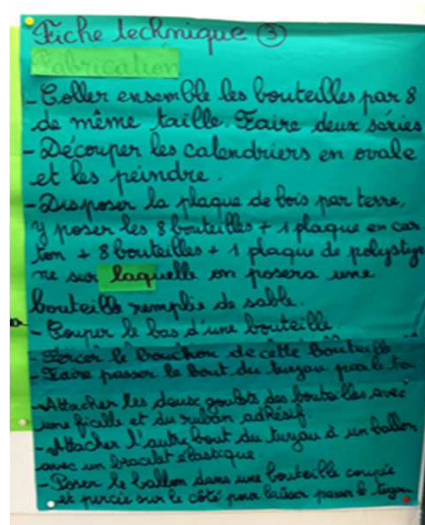 Fiche technique ③
Fabrication
- Coller ensemble les bouteilles par 8
de même taille. Faire deux séries
- Découper les calendriers en ovale
et les peindre.
- Disposer la plaque de bois par terre,
y poser les 8 bouteilles + 1 plaque en car
ton + 8 bouteilles + 1 plaque de polystyr
ne sur laquelle on posera une
bouteille remplie de sable.
- Couper le bas d'une bouteille.
- Percer le bouchon de cette bouteille
- Faire passer le bout du tuyau par le tr
- Attacher les deux goulots des bouteilles avec
une ficelle et du ruban adhésif.
- Attacher l'autre bout du tuyau à un ballon
avec un bracelet élastique.
- Poser le ballon dans une bouteille coupée
et percée sur le côté pour laisser passer le tuyau